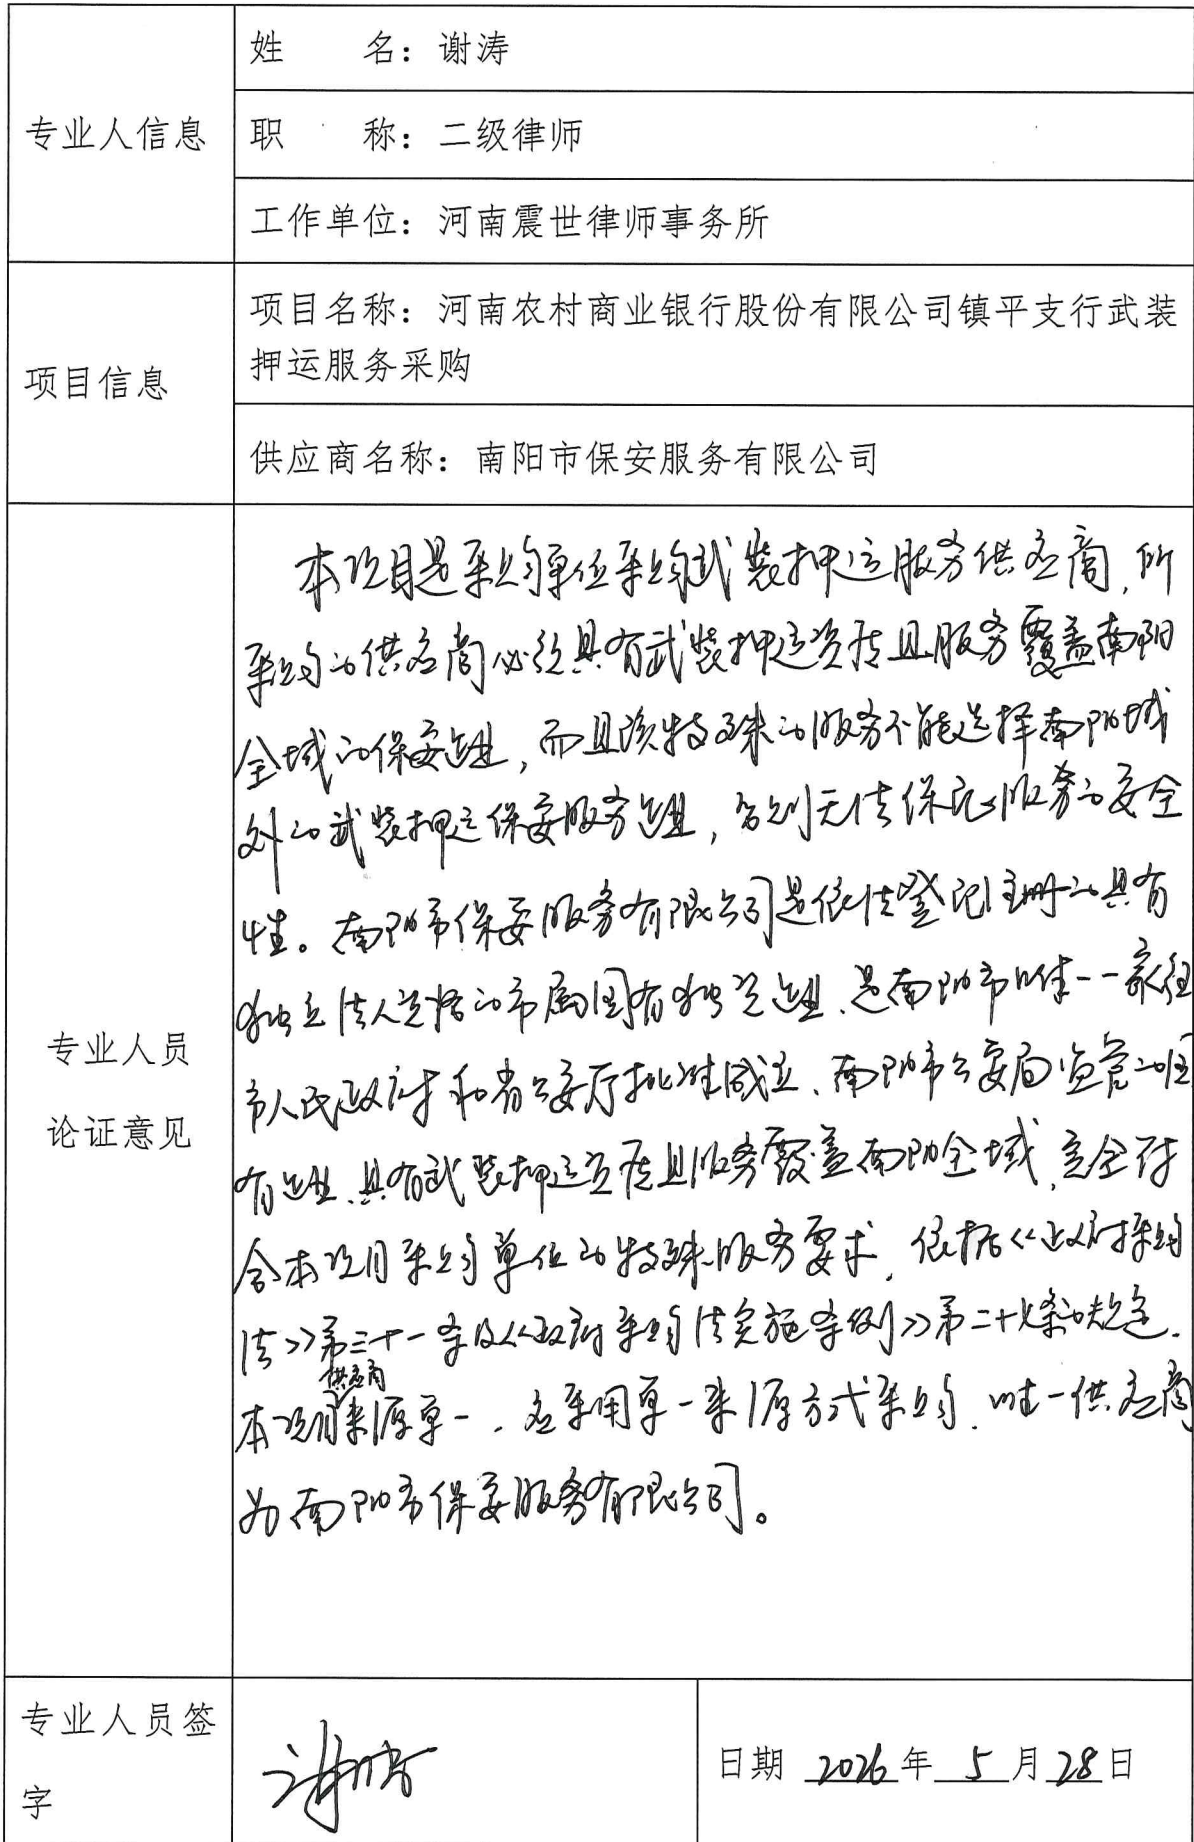 专业人信息
姓 名：谢涛
职 称：二级律师
工作单位：河南震世律师事务所
项目信息
项目名称：河南农村商业银行股份有限公司镇平支行武装
押运服务采购
供应商名称：南阳市保安服务有限公司
专业人员
论证意见
本项目是采购单位采购武装押运服务供应商，所
采购的供应商必须具有武装押运资质且服务覆盖南阳
全域的保安企业，而且该特殊的服务不能选择南阳域
外的武装押运保安服务企业，否则无法保证服务的安全
性。南阳市保安服务有限公司是依法登记注册的具有
独立法人资格的市属国有独资企业，是南阳市唯一一家经
市人民政府和省公安厅批准成立、南阳市公安局监管的国
有企业，具有武装押运资质且服务覆盖南阳全域，完全符
合本项目采购单位的特殊服务要求，依据《政府采购
法》第三十一条及《政府采购法实施条例》第二十七条的规定，
供应商
本项目来源单一，应采用单一来源方式采购，唯一供应商
为南阳市保安服务有限公司。
专业人员签
字
谢涛
日期 2026年 5月28日